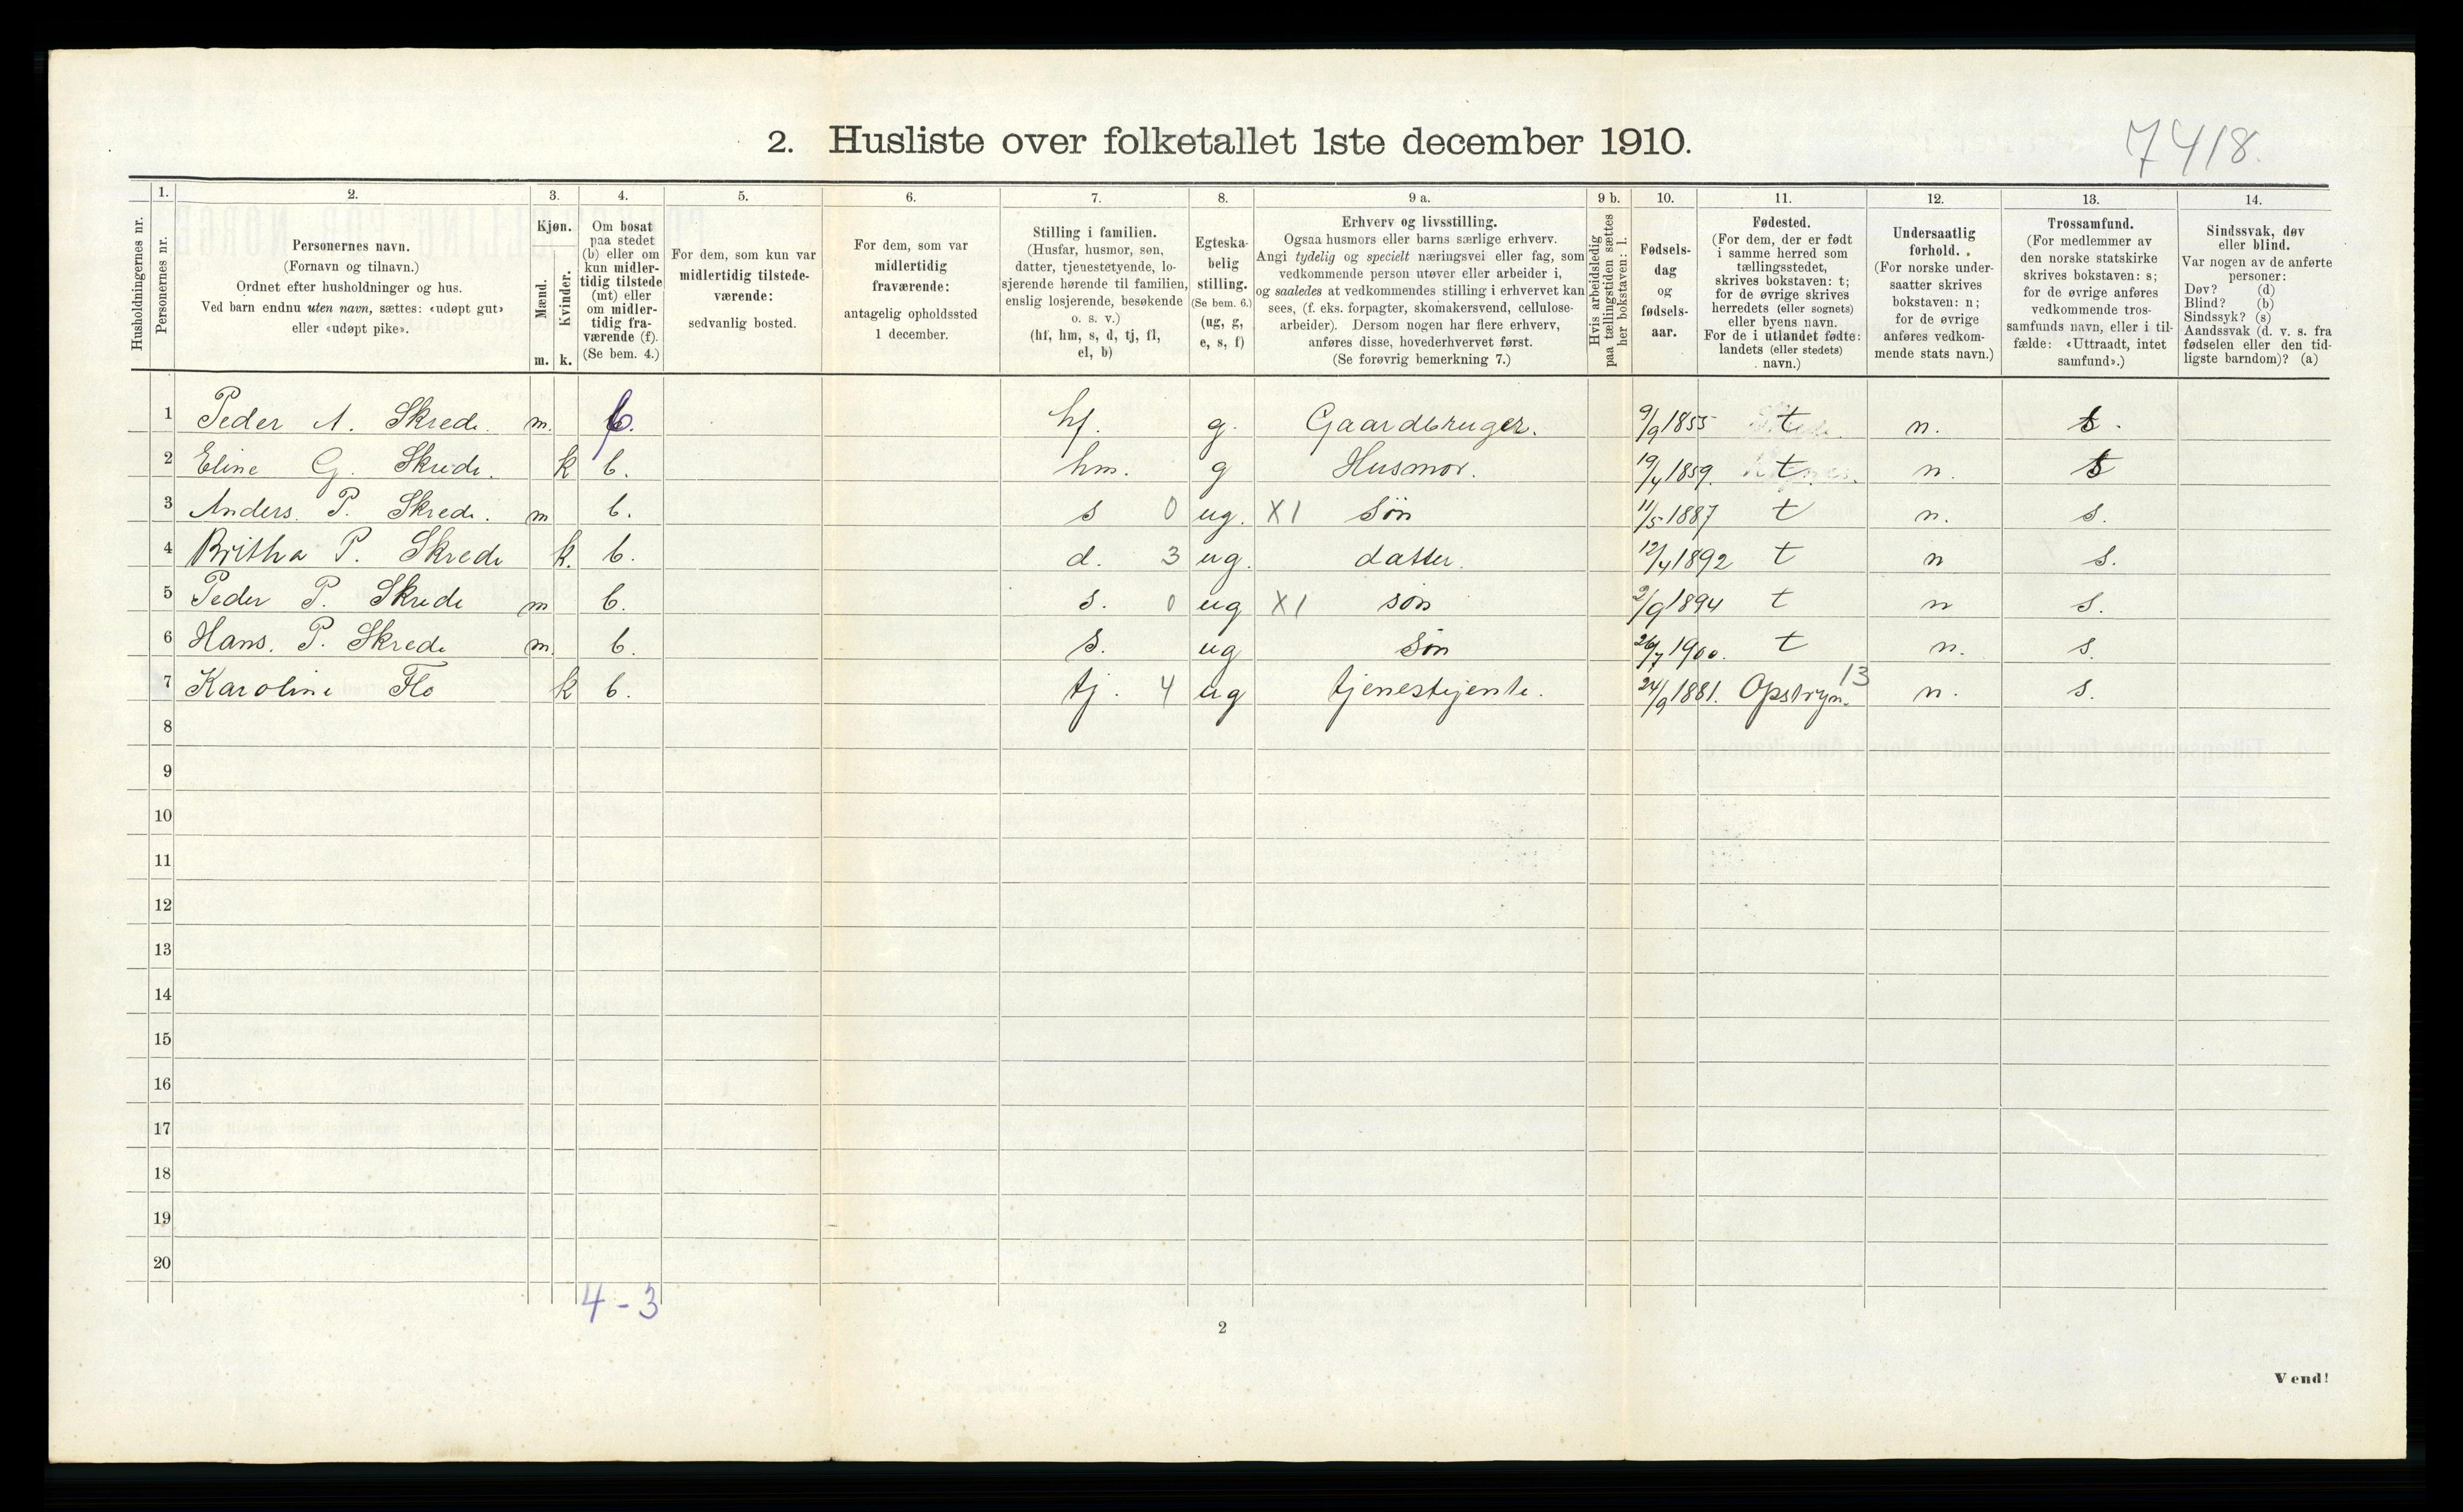 2. Husliste over folketallet 1ste december 1910.
7418.
Husholdningernes nr.
1.
Personernes nr.
2.
Personernes navn.
(Fornavn og tilnavn.)
Ordnet efter husholdninger og hus.
Ved barn endnu uten navn, sættes: «udøpt gut»
eller «udøpt pike».
3.
Kjøn.
Mænd.
Kvinder.
m. k.
4.
Om bosat
paa stedet
(b) eller om
kun midler-
tidig tilstede
(mt) eller
om midler-
tidig fra-
værende (f).
(Se bem. 4.)
5.
For dem, som kun var
midlertidig tilstede-
værende:
sedvanlig bosted.
6.
For dem, som var
midlertidig
fraværende:
antagelig opholdssted
1 december.
7.
Stilling i familien.
(Husfar, husmor, søn,
datter, tjenestetyende, lo-
sjerende hørende til familien,
enslig losjerende, besøkende
o. s. v.)
(hf, hm, s, d, tj, fl,
el, b)
8.
Egteska-
belig
stilling.
(Se bem. 6.)
(ug, g,
e, s, f)
9 a.
Erhverv og livsstilling.
Ogsaa husmors eller barns særlige erhverv.
Angi tydelig og specielt næringsvei eller fag, som
vedkommende person utøver eller arbeider i,
og saaledes at vedkommendes stilling i erhvervet kan
sees, (f. eks. forpagter, skomakersvend, cellulose-
arbeider). Dersom nogen har flere erhverv,
anføres disse, hovederhvervet først.
(Se forøvrig bemerkning 7.)
9 b.
Hvis arbeidsledig
paa tællingstiden sættes
her bokstaven: l.
10.
Fødsels-
dag
og
fødsels-
aar.
11.
Fødested.
(For dem, der er født
i samme herred som
tællingsstedet,
skrives bokstaven: t;
for de øvrige skrives
herredets (eller sognets)
eller byens navn.
For de i utlandet fødte:
landets (eller stedets)
navn.)
12.
Undersaatlig
forhold.
(For norske under-
saatter skrives
bokstaven: n;
for de øvrige
anføres vedkom-
mende stats navn.)
13.
Trossamfund.
(For medlemmer av
den norske statskirke
skrives bokstaven: s;
for de øvrige anføres
vedkommende tros-
samfunds navn, eller i til-
fælde: «Uttraadt, intet
samfund».)
14.
Sindssvak, døv
eller blind.
Var nogen av de anførte
personer:
Døv? (d)
Blind? (b)
Sindssyk? (s)
Aandssvak (d. v. s. fra
fødselen eller den tid-
ligste barndom)? (a)
1 Peder A. Skrede. m. b. hf. g. Gaardbruger. 9/9 1855 t n. s.
2 Eline G. Skrede. k b. hm. g Husmor. 19/4 1859. t n. s
3 Anders. P. Skrede. m b. s 0 ug. X1 Søn 11/5 1887 t n. s.
4 Britha P. Skrede k. b. d. 3 ug. datter. 12/4 1892 t n s.
5 Peder P. Skrede m b. s. 0 ug X1 søn 2/9 1894 t n s.
6 Hans. P. Skrede m. b. s. ug Søn 26/7 1900. t n. s.
7 Karoline Flo k b. tj. 4 ug tjenestejente. 24/9 1881. Opstryn. 13 n. s.
8
9
10
11
12
13
14
15
16
17
18
19
20
4 - 3
2
Vend!